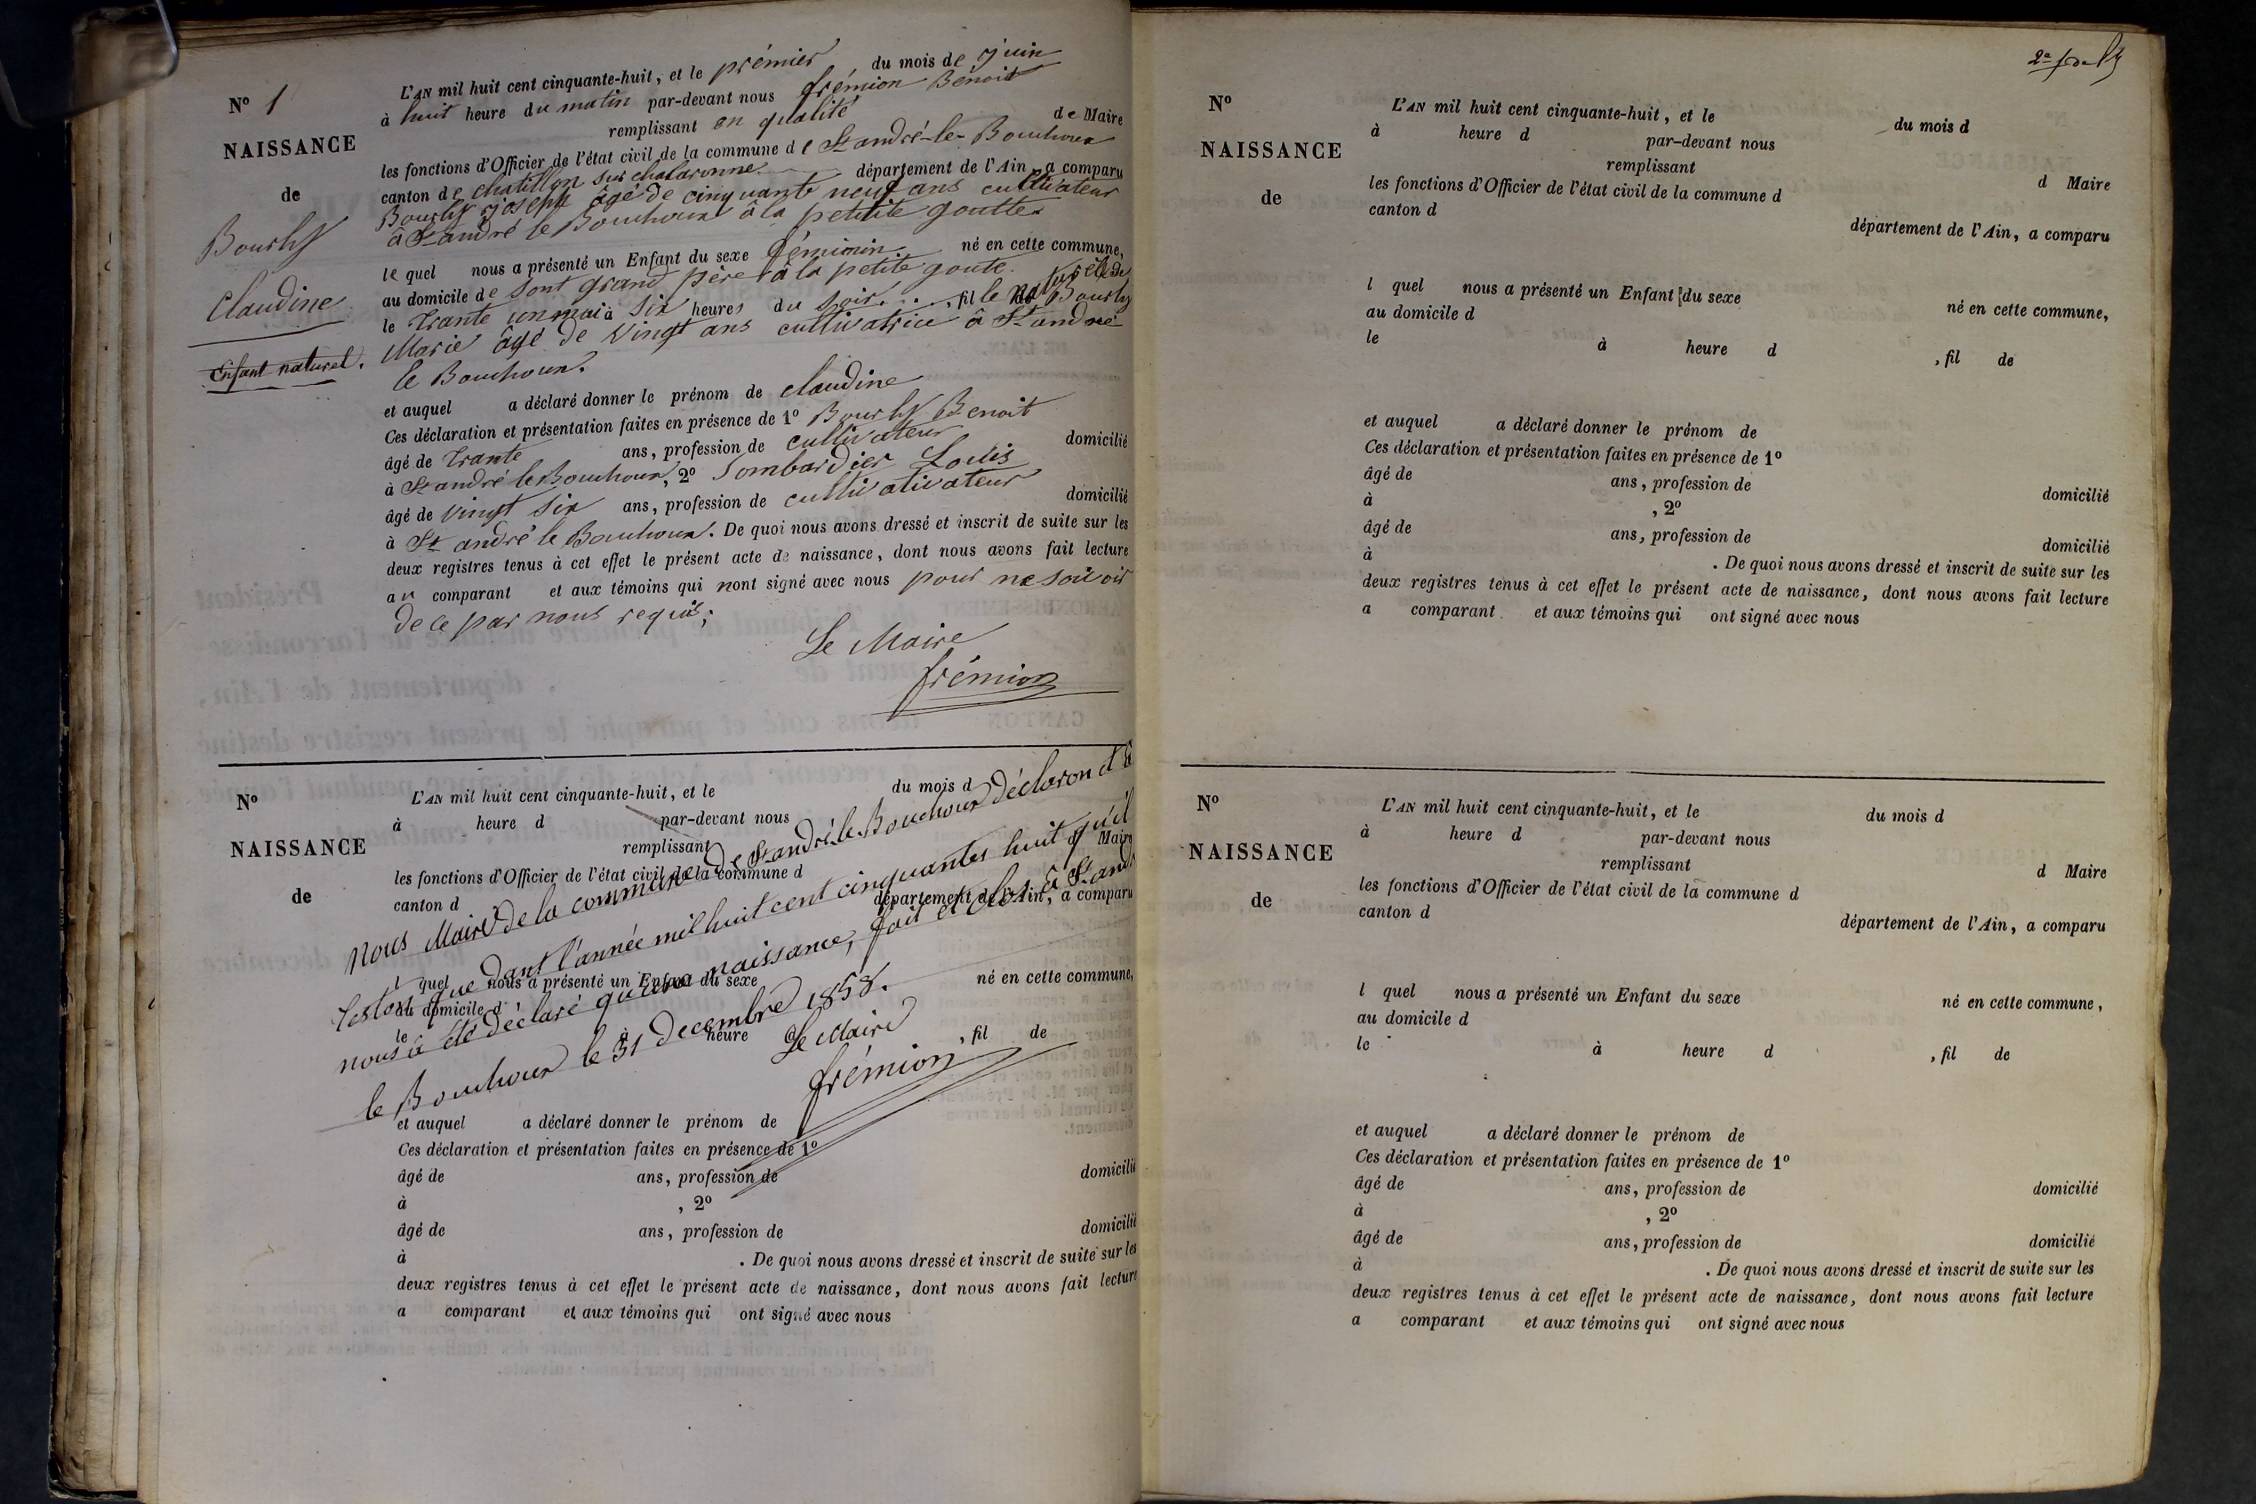 Nº 1
NAISSANCE
de
Bourly
Claudine
Enfant naturel.
L'AN mil huit cent cinquante-huit, et le prémier du mois de juin
à huit heure du matin par-devant nous frémion Benoit
remplissant en qualité de Maire
les fonctions d'Officier de l'état civil de la commune de St andré-le-Bouchoux
canton de chatillon sur chalaronne département de l'Ain, a comparu
Bourly joseph âgé de cinquante neuf ans cultivateur
à St andré le Bouchoux à la petitite goutte
le quel nous a présenté un Enfant du sexe féminin né en cette commune,
au domicile de sont grand père à la petite goute.
le trante un mai à six heures du soir, fille naturelle de Bourly
Marie âgé de vingt ans cultivatrice à St andré
le Bouchoux.
et auquel a déclaré donner le prénom de claudine
Ces déclaration et présentation faites en présence de 1º Bourly Benoit
âgé de trante ans, profession de cultivateur domicilié
à St andré le Bouchoux, 2º Lombardier Louis
âgé de vingt six ans, profession de cultivativateur domicilié
à St andré le Bouchoux. De quoi nous avons dressé et inscrit de suite sur les
deux registres tenus à cet effet le présent acte de naissance, dont nous avons fait lecture
au comparant et aux témoins qui nont signé avec nous pour ne savoir
de ce par nous requis;
Le Maire
frémion
Nº
NAISSANCE
de
L'AN mil huit cent cinquante-huit, et le du mois d
à heure d par-devant nous
remplissant d Maire
les fonctions d'Officier de l'état civil de la commune d
canton d département de l'Ain, a comparu
l quel nous a présenté un Enfant du sexe né en cette commune,
au domicile d
le à heure d , fil de
nous Maire de la commune de St andré le Bouchoux déclaron et
que dant l'année mil huit cent cinquantes huit qu'il
nous a été déclaré qu'une naissance, fait et clos à St andré
le Bouchoux le 31 decembre 1858.
Le Maire
frémion
et auquel a déclaré donner le prénom de
Ces déclaration et présentation faites en présence de 1º
âgé de ans, profession de domicilié
à , 2º
âgé de ans, profession de domicilié
à . De quoi nous avons dressé et inscrit de suite sur les
deux registres tenus à cet effet le présent acte de naissance, dont nous avons fait lecture
a comparant et aux témoins qui ont signé avec nous
Nº
NAISSANCE
de
L'AN mil huit cent cinquante-huit, et le du mois d
à heure d par-devant nous
remplissant d Maire
les fonctions d'Officier de l'état civil de la commune d
canton d
département de l'Ain, a comparu
l quel nous a présenté un Enfant du sexe né en cette commune,
au domicile d
le à heure d , fil de
et auquel a déclaré donner le prénom de
Ces déclaration et présentation faites en présence de 1º
âgé de ans, profession de domicilié
à , 2º
âgé de ans, profession de domicilié
à . De quoi nous avons dressé et inscrit de suite sur les
deux registres tenus à cet effet le présent acte de naissance, dont nous avons fait lecture
a comparant et aux témoins qui ont signé avec nous
Nº
NAISSANCE
de
L'AN mil huit cent cinquante-huit, et le du mois d
à heure d par-devant nous
remplissant d Maire
les fonctions d'Officier de l'état civil de la commune d
canton d
département de l'Ain, a comparu
l quel nous a présenté un Enfant du sexe né en cette commune,
au domicile d
le à heure d , fil de
et auquel a déclaré donner le prénom de
Ces déclaration et présentation faites en présence de 1º
âgé de ans, profession de domicilié
à , 2º
âgé de ans, profession de domicilié
à . De quoi nous avons dressé et inscrit de suite sur les
deux registres tenus à cet effet le présent acte de naissance, dont nous avons fait lecture
a comparant et aux témoins qui ont signé avec nous